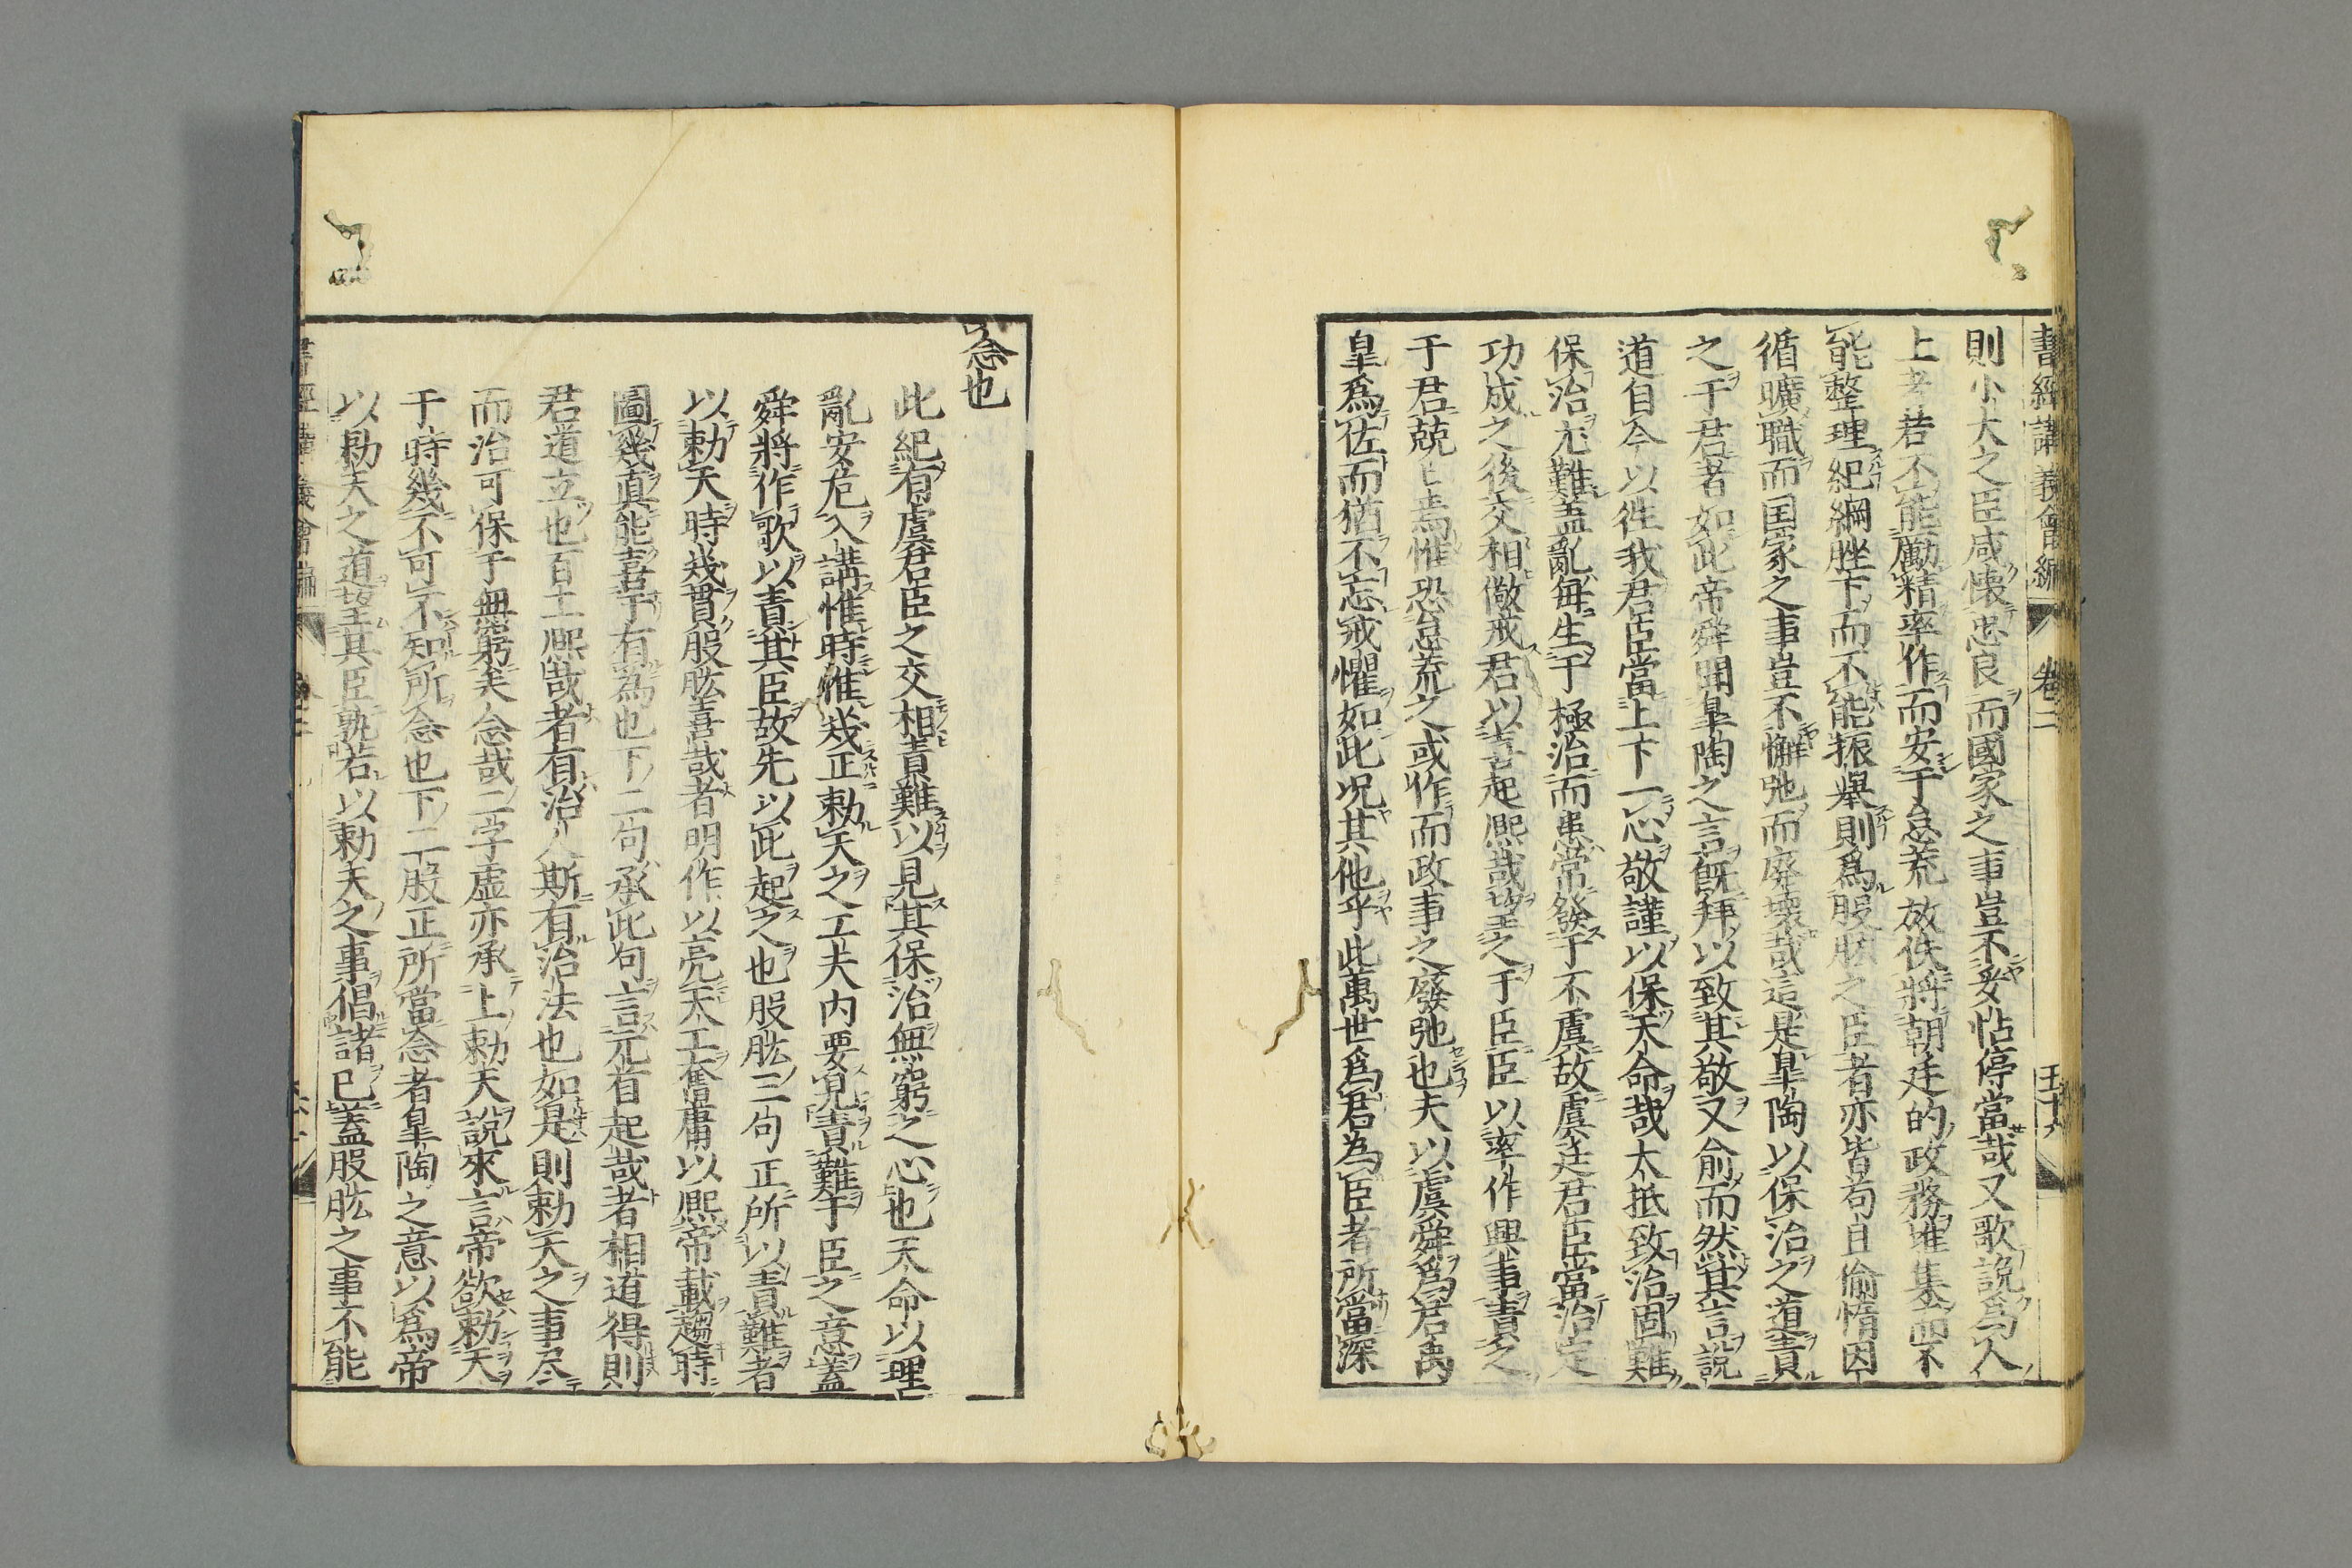 書經講義會編 卷二 五十九
則小大之臣咸懐忠良而國家之事豈不妥帖停當哉又歌說爲人
上者若不能勵精率作而安于怠荒放佚將朝廷的政務堆集而不
能整理紀綱脞下而不能振舉則爲股肱之臣者亦皆苟且偷惰因
循曠職而国家之事豈不懈弛而廢壞哉這是臯陶以保治之道責
之于君者如此帝舜聞臯陶之言旣拜以致其敬又俞而然其言說
道自今以徃我君臣當上下一心敬謹以保天命哉大抵致治固難
保治尤難盖亂每生于極治而患常發于不虞故虞廷君臣當治定
功成之後交相儆戒君以喜起熙哉望之于臣臣以率作興事責之
于君兢兢焉惟恐怠荒之或作而政事之廢弛也夫以虞舜爲君禹
臯爲佐而猶不忘戒懼如此况其他乎此萬世爲君為臣者所當深
念也
此紀有虞君臣之交相責難以見其保治無窮之心也天命以理亡
亂安危入講惟時惟幾正勅天之工夫内要見責難于臣之意蓋
舜將作歌以責其臣故先以此起之也股肱三句正所以責難者
以勅天時幾貫股肱喜哉者明作以亮天工奮庸以熙帝載趨時
圖幾真能喜于有為也下二句承此句言元首起哉者相道得則
君道立也百工熙哉者有治人斯有治法也如是則勅天之事尽
而治可保于無窮矣念哉二字虚亦承上勅天說來言帝欲勅天
于時幾不可不知所念也下二股正所當念者臯陶之意以爲帝
以勅天之道望其臣孰若以勅天之事倡諸已蓋股肱之事不能
書經講義會編 卷二 六十